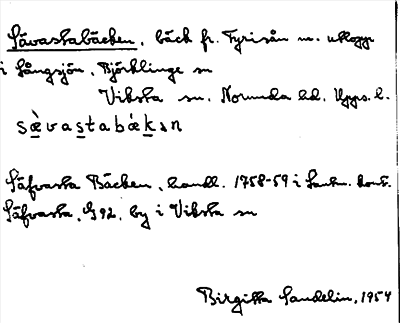 Sävastabäcken, bäck fr. Fyrisån m. utlopp
i Långsjön, Björklinge sn
Viksta sn. Norunda hd. Upps. l.
sæ̀vastabákən
Säfvasta Bäcken, handl. 1758-59 i Lantm. kont.
Säfvasta, G92, by i Viksta sn
Birgitta Sandelin, 1954